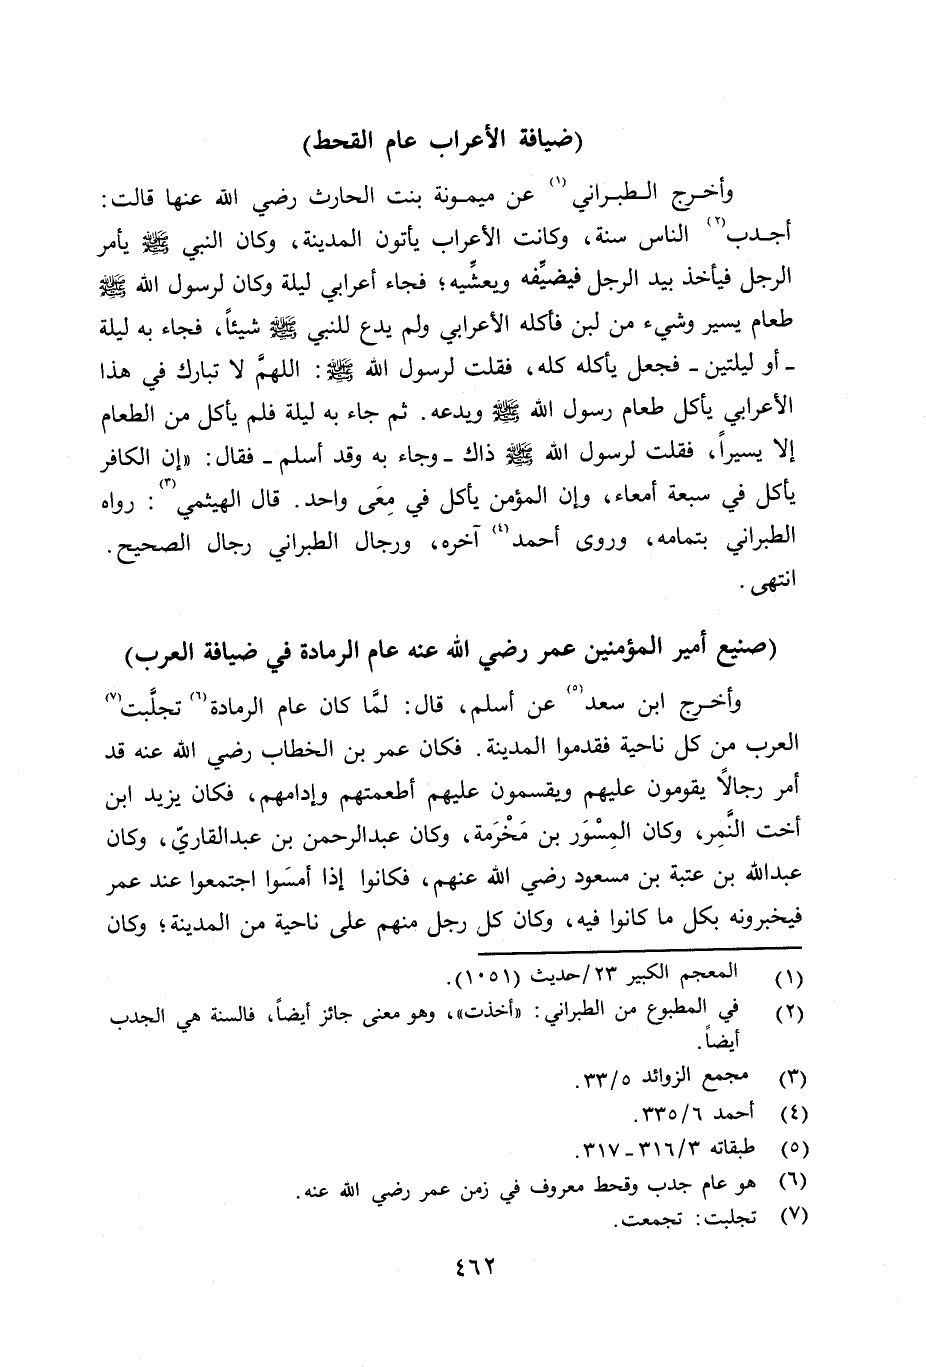 (ضيافة الأعراب عام القحط)
وأخرج الطبراني(١) عن ميمونة بنت الحارث رضي الله عنها قالت:
أجدب(٢) الناس سنة، وكانت الأعراب يأتون المدينة، وكان النبي ﷺ يأمر
الرجل فيأخذ بيد الرجل فيضيِّفه ويعشِّيه؛ فجاء أعرابي ليلة وكان لرسول الله ﷺ
طعام يسير وشيء من لبن فأكله الأعرابي ولم يدع للنبي ﷺ شيئاً، فجاء به ليلة
ـ أو ليلتين ـ فجعل يأكله كله، فقلت لرسول الله ﷺ: اللهمَّ لا تبارك في هذا
الأعرابي يأكل طعام رسول الله ﷺ ويدعه. ثم جاء به ليلة فلم يأكل من الطعام
إلا يسيراً، فقلت لرسول الله ﷺ ذاك ـ وجاء به وقد أسلم ـ فقال: «إن الكافر
يأكل في سبعة أمعاء، وإن المؤمن يأكل في مِعَى واحد. قال الهيثمي(٣): رواه
الطبراني بتمامه، وروى أحمد(٤) آخره، ورجال الطبراني رجال الصحيح.
انتهى.
(صنيع أمير المؤمنين عمر رضي الله عنه عام الرمادة في ضيافة العرب)
وأخرج ابن سعد(٥) عن أسلم، قال: لمَّا كان عام الرمادة(٦) تجلَّبت(٧)
العرب من كل ناحية فقدموا المدينة. فكان عمر بن الخطاب رضي الله عنه قد
أمر رجالاً يقومون عليهم ويقسمون عليهم أطعمتهم وإدامهم، فكان يزيد ابن
أخت النَّمِر، وكان المِسْوَر بن مَخْرَمة، وكان عبدالرحمن بن عبدالقاريّ، وكان
عبدالله بن عتبة بن مسعود رضي الله عنهم، فكانوا إذا أمسَوا اجتمعوا عند عمر
فيخبرونه بكل ما كانوا فيه، وكان كل رجل منهم على ناحية من المدينة؛ وكان
(١) المعجم الكبير ٢٣/حديث (١٠٥١).
(٢) في المطبوع من الطبراني: «أخذت»، وهو معنى جائز أيضاً، فالسنة هي الجدب
أيضاً.
(٣) مجمع الزوائد ٣٣/٥.
(٤) أحمد ٣٣٥/٦.
(٥) طبقاته ٣١٦/٣ ـ ٣١٧.
(٦) هو عام جدب وقحط معروف في زمن عمر رضي الله عنه.
(٧) تجلبت: تجمعت.
٤٦٢